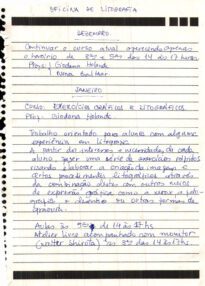 OFICINA DE LITOGRAFIA
DEZEMBRO
Continuar o curso atual oferecendo apenas
o horário de 3as e 5as das 14 às 17 horas
Profs: Giodana Holanda
JANEIRO
Curso: EXERCÍCIOS GRÁFICOS E LITOGRÁFICOS
Prof. Giodana Holanda
Trabalho orientado para alunos com alguma
experiência em litografia.
A partir de interesses e necessidades de cada
aluno, fazer uma série de exercícios rápidos
visando elaborar a criação da imagem e
certos procedimentos litográficos através
da combinação destes com outros meios
de expressão gráfica como a xerox, a foto-
grafia, o desenho ou outras formas de
gravura.
Aulas às 5as de 14 às
Atelier livre acompanhado com monitor
às 3as das 14 às 17hs